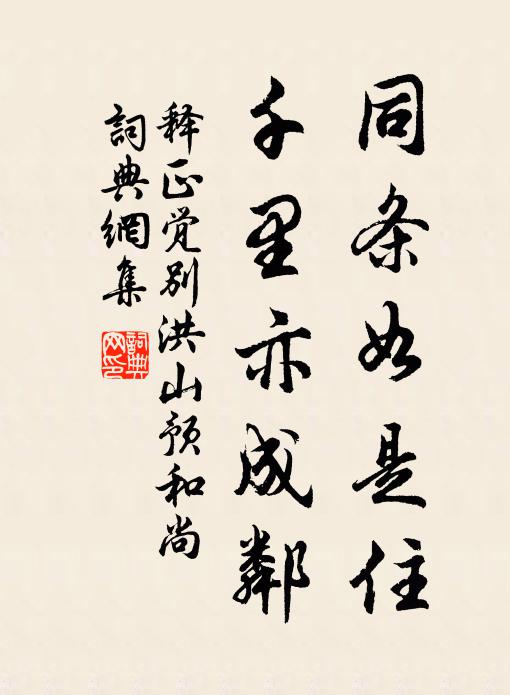 同条如是住
千里亦成鄰
释正觉别洪山预和尚
詞典網集
詞典网印